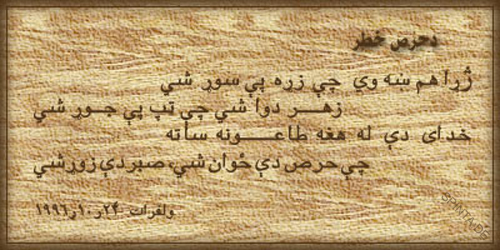 دحرص خطر
ژړا هم ښه وي چې زړه پې سوړ شي
زهر دوا شي چې ټپ پې جوړ شي
خدای دې له هغه طاعونه ساته
چې حرص دې ځوان شي، صبر دې زوړ شي
ولفرات ۲۴ر۱۰ر۱۹۹۶